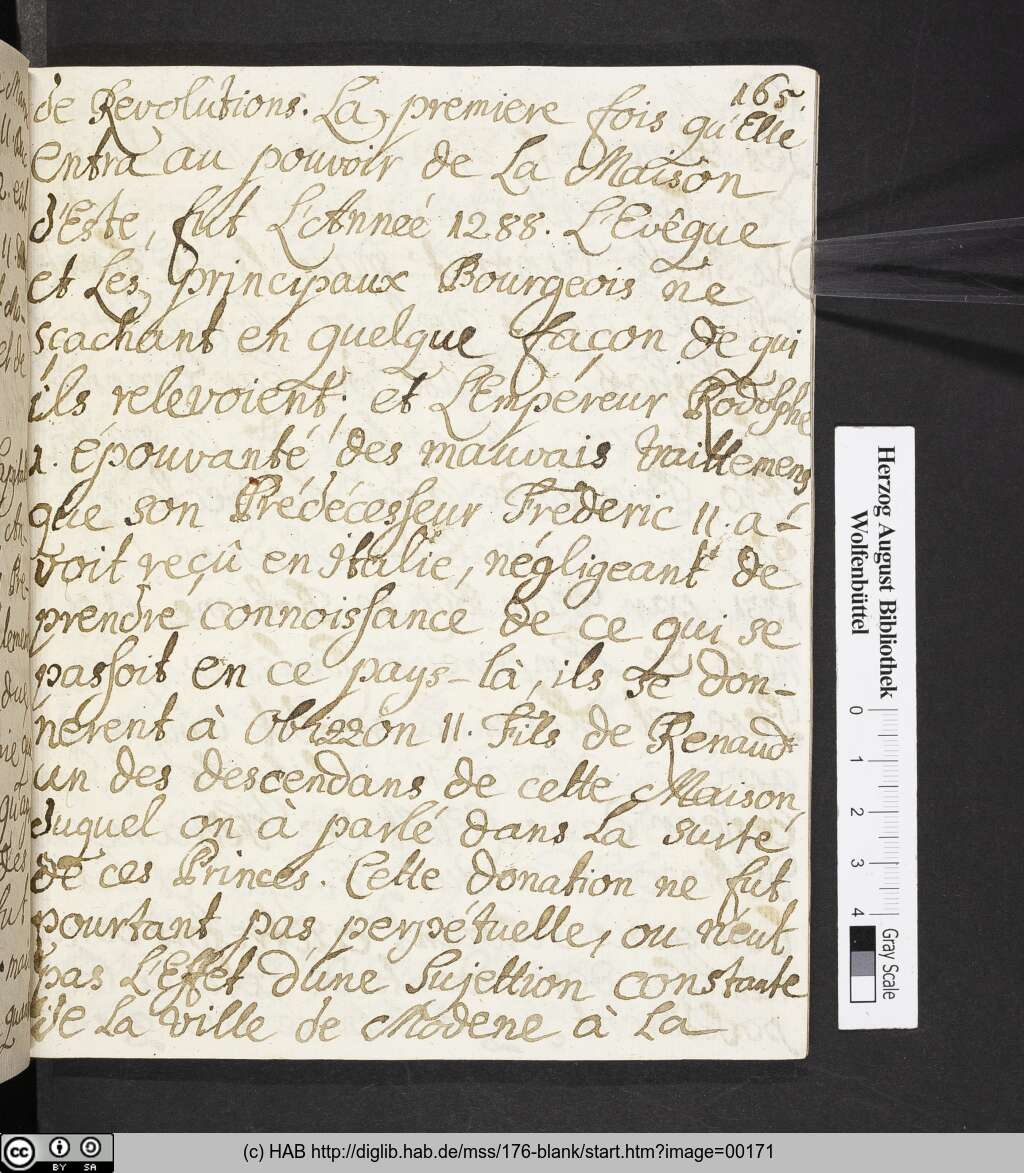 165.
de Revolutions. La premiere fois qu'Elle
entra au pouvoir de La Maison
d'Este, fut L'Anneé 1288. L'Evêque
et Les principaux Bourgeois ne
sçachant en quelque façon de qui
ils relevoient, et L'Empereur Rodolphe
1. épouvanté des mauvais traittemens
que son Prédécesseur Frederic II. a-
voit reçû en Italie, négligeant de
prendre connoissance de ce qui se
passoit en ce pays-là, ils se don-
nerent à Obizzon II. Fils de Renaud
un des descendans de cette Maison,
duquel on à parlé dans La suite
de ces Princes. Cette donation ne fut
pourtant pas perpétuelle, ou n'eut
pas L'Effet d'une Sujettion constante
de La Ville de Modene à La
Herzog August Bibliothek
Wolfenbüttel
0 1 2 3 4
Gray Scale
cc BY SA
(c) HAB http://diglib.hab.de/mss/176-blank/start.htm?image=00171